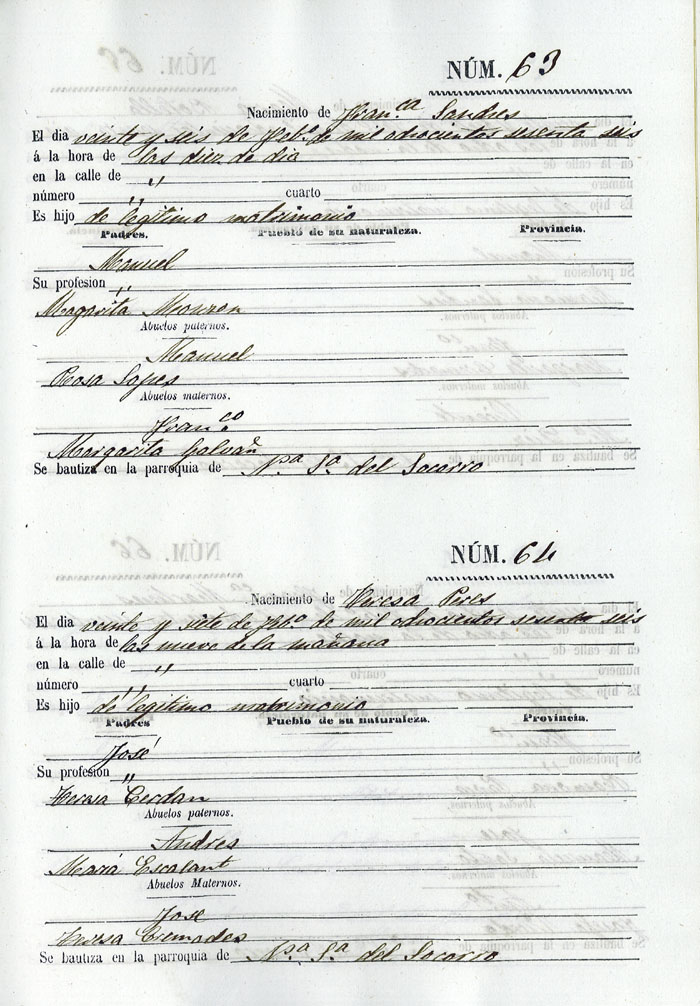 NÚM. 63
Nacimiento de Fran.ca Sandres
El dia veinte y seis de Feb.o de mil ochocientos sesenta seis
á la hora de las diez de dia
en la calle de "
número " cuarto
Es hijo de legitimo matrimonio
Padres. Pueblo de su naturaleza. Provincia.
Manuel
Su profesion "
Magarita Monzon
Abuelos paternos.
Manuel
Rosa Lopes
Abuelos maternos.
Fran.co
Margarita Galvañ
Se bautiza en la parroquia de N.a S.a del Socorro
NÚM. 64
Nacimiento de Teresa Peres
El dia veinte y siete de Feb.o de mil ochocientos sesenta seis
á la hora de las nueve de la mañana
en la calle de "
número " cuarto
Es hijo de legitimo matrimonio
Padres Pueblo de su naturaleza. Provincia.
José
Su profesion "
Teresa Cerdan
Abuelos paternos.
Andres
Maria Escalant
Abuelos Maternos.
Jose
Teresa Cremades
Se bautiza en la parroquia de N.a S.a del Socorro